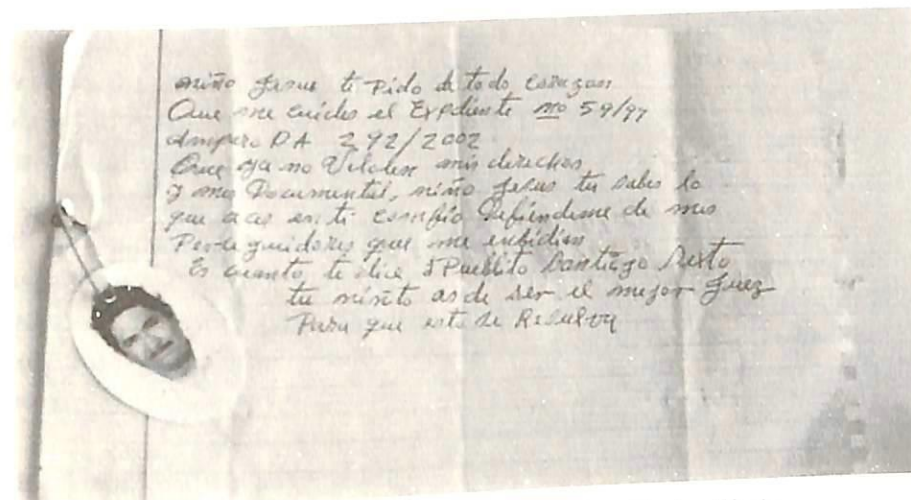 niño Jesus te Pido de todo corazon
Que me cuides el Expediente no 59/97
Amparo DA 292/2002
Que ya no Violen mis derechos
y mis Documentos, niño Jesus tu sabes lo
que aces en ti confio Defiendeme de mis
Perseguidores que me enbidian
Es cuanto te dice el Pueblito Santiago Sexto
tu niñito as de ser el mejor Juez
Para que esto se Resuelva